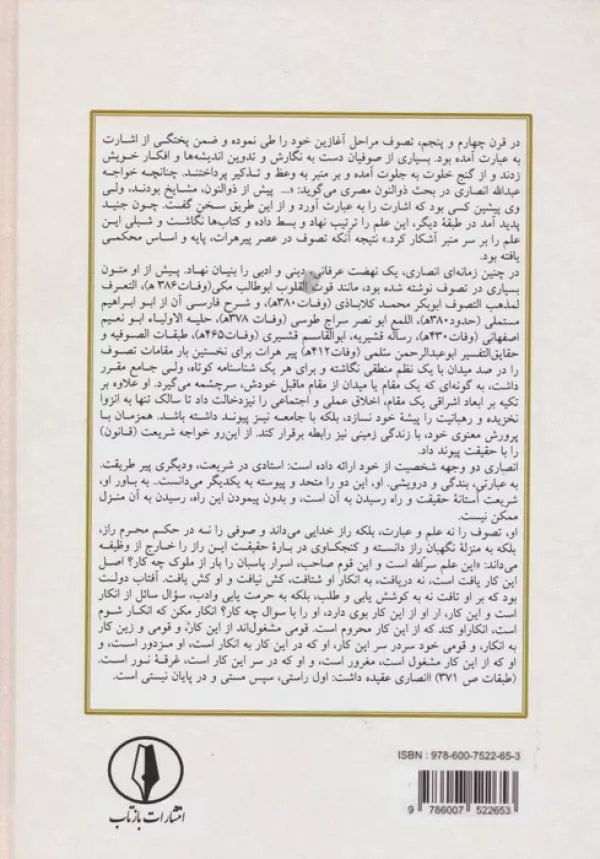 در قرن چهارم و پنجم، تصوف مراحل آغازین خود را طی نموده و ضمن پختگی از اشارت
به عبارت آمده بود. بسیاری از صوفیان دست به نگارش و تدوین اندیشه‌ها و افکار خویش
زدند و از گنج خلوت به جلوت آمده و بر منبر به وعظ و تذکیر پرداختند. چنانچه خواجه
عبدالله انصاری در بحث ذوالنون مصری می‌گوید: «... پیش از ذوالنون، مشایخ بودند، ولی
وی پیشین کسی بود که اشارت را به عبارت آورد و از این طریق سخن گفت. چون جنید
پدید آمد در طبقهٔ دیگر، این علم را ترتیب نهاد و بسط داده و کتاب‌ها نگاشت و شبلی این
علم را بر سر منبر آشکار کرد.» نتیجه آنکه تصوف در عصر پیرهرات، پایه و اساس محکمی
یافته بود.
در چنین زمانه‌ای انصاری، یک نهضت عرفانی، دینی و ادبی را بنیان نهاد. پیش از او متون
بسیاری در تصوف نوشته شده بود، مانند قوت القلوب ابوطالب مکی(وفات۳۸۶ ه)، التعرف
لمذهب التصوف ابوبکر محمد کلاباذی (وفات۳۸۰ه)، و شرح فارسی آن از ابو ابراهیم
مستملی (حدود۳۸۰ه)، اللمع ابو نصر سراج طوسی (وفات ۳۷۸ه)، حلیه الاولیاء ابو نعیم
اصفهانی (وفات۴۳۰ه)، رساله قشیریه، ابوالقاسم قشیری (وفات۴۶۵ه)، طبقات الصوفیه و
حقایق‌التفسیر ابوعبدالرحمن سُلمی (وفات۴۱۲ه) پیر هرات برای نخستین بار مقامات تصوف
را در صد میدان با یک نظم منطقی نگاشته و برای هر یک شناسنامه کوتاه، ولی جامع مقرر
داشت، به گونه‌ای که یک مقام یا میدان از مقام ماقبل خودش، سرچشمه می‌گیرد. او علاوه بر
تکیه بر ابعاد اشراقی یک مقام، اخلاق عملی و اجتماعی را نیزدخالت داد تا سالک تنها به انزوا
نخزیده و رهبانیت را پیشهٔ خود نسازد، بلکه با جامعه نیز پیوند داشته باشد. همزمان با
پرورش معنوی خود، با زندگی زمینی نیز رابطه برقرار کند. از این‌رو خواجه شریعت (قانون)
را با حقیقت پیوند داد.
انصاری دو وجهه شخصیت از خود ارائه داده است: استادی در شریعت، ودیگری پیر طریقت.
به عبارتی، بندگی و درویشی. او، این دو را متحد و پیوسته به یکدیگر می‌دانست.. به باور او،
شریعت آستانهٔ حقیقت و راه رسیدن به آن است، و بدون پیمودن این راه، رسیدن به آن منزل
ممکن نیست.
او، تصوف را نه علم و عبارت، بلکه راز خدایی می‌داند و صوفی را نه در حکم محرم راز،
بلکه به منزلهٔ نگهبان راز دانسته و کنجکاوی در بارهٔ حقیقت این راز را خارج از وظیفه
می‌داند: «این علم سرّالله است و این قوم صاحب، اسرار پاسبان را بار از ملوک چه کار؟ اصل
این کار یافت است، نه دریافت، به انکار او شتافت، کش نیافت و او کش یافت. آفتاب دولت
بود که بر او تافت نه به کوشش یابی و طلب، بلکه به حرمت یابی وادب، سؤال سائل از انکار
است و این کار، ار او از این کار بوی دارد، او را با سوال چه کار؟ انکار مکن که انکار شوم
است، انکاراو کند که از این کار محروم است. قومی مشغول‌اند از این کار، و قومی و زین کار
به انکار، و قومی خود سردر سر این کار، او که در این کار به انکار است، او مزدور است، و
او که از این کار مشغول است، مغرور است، و او که در سر این کار است، غرقهٔ نور است.
(طبقات ص ۳۷۱) اانصاری عقیده داشت: اول راستی، سپس مستی و در پایان نیستی است.
ISBN : 978-600-7522-65-3
9 786007 522653
انتشارات بازتاب